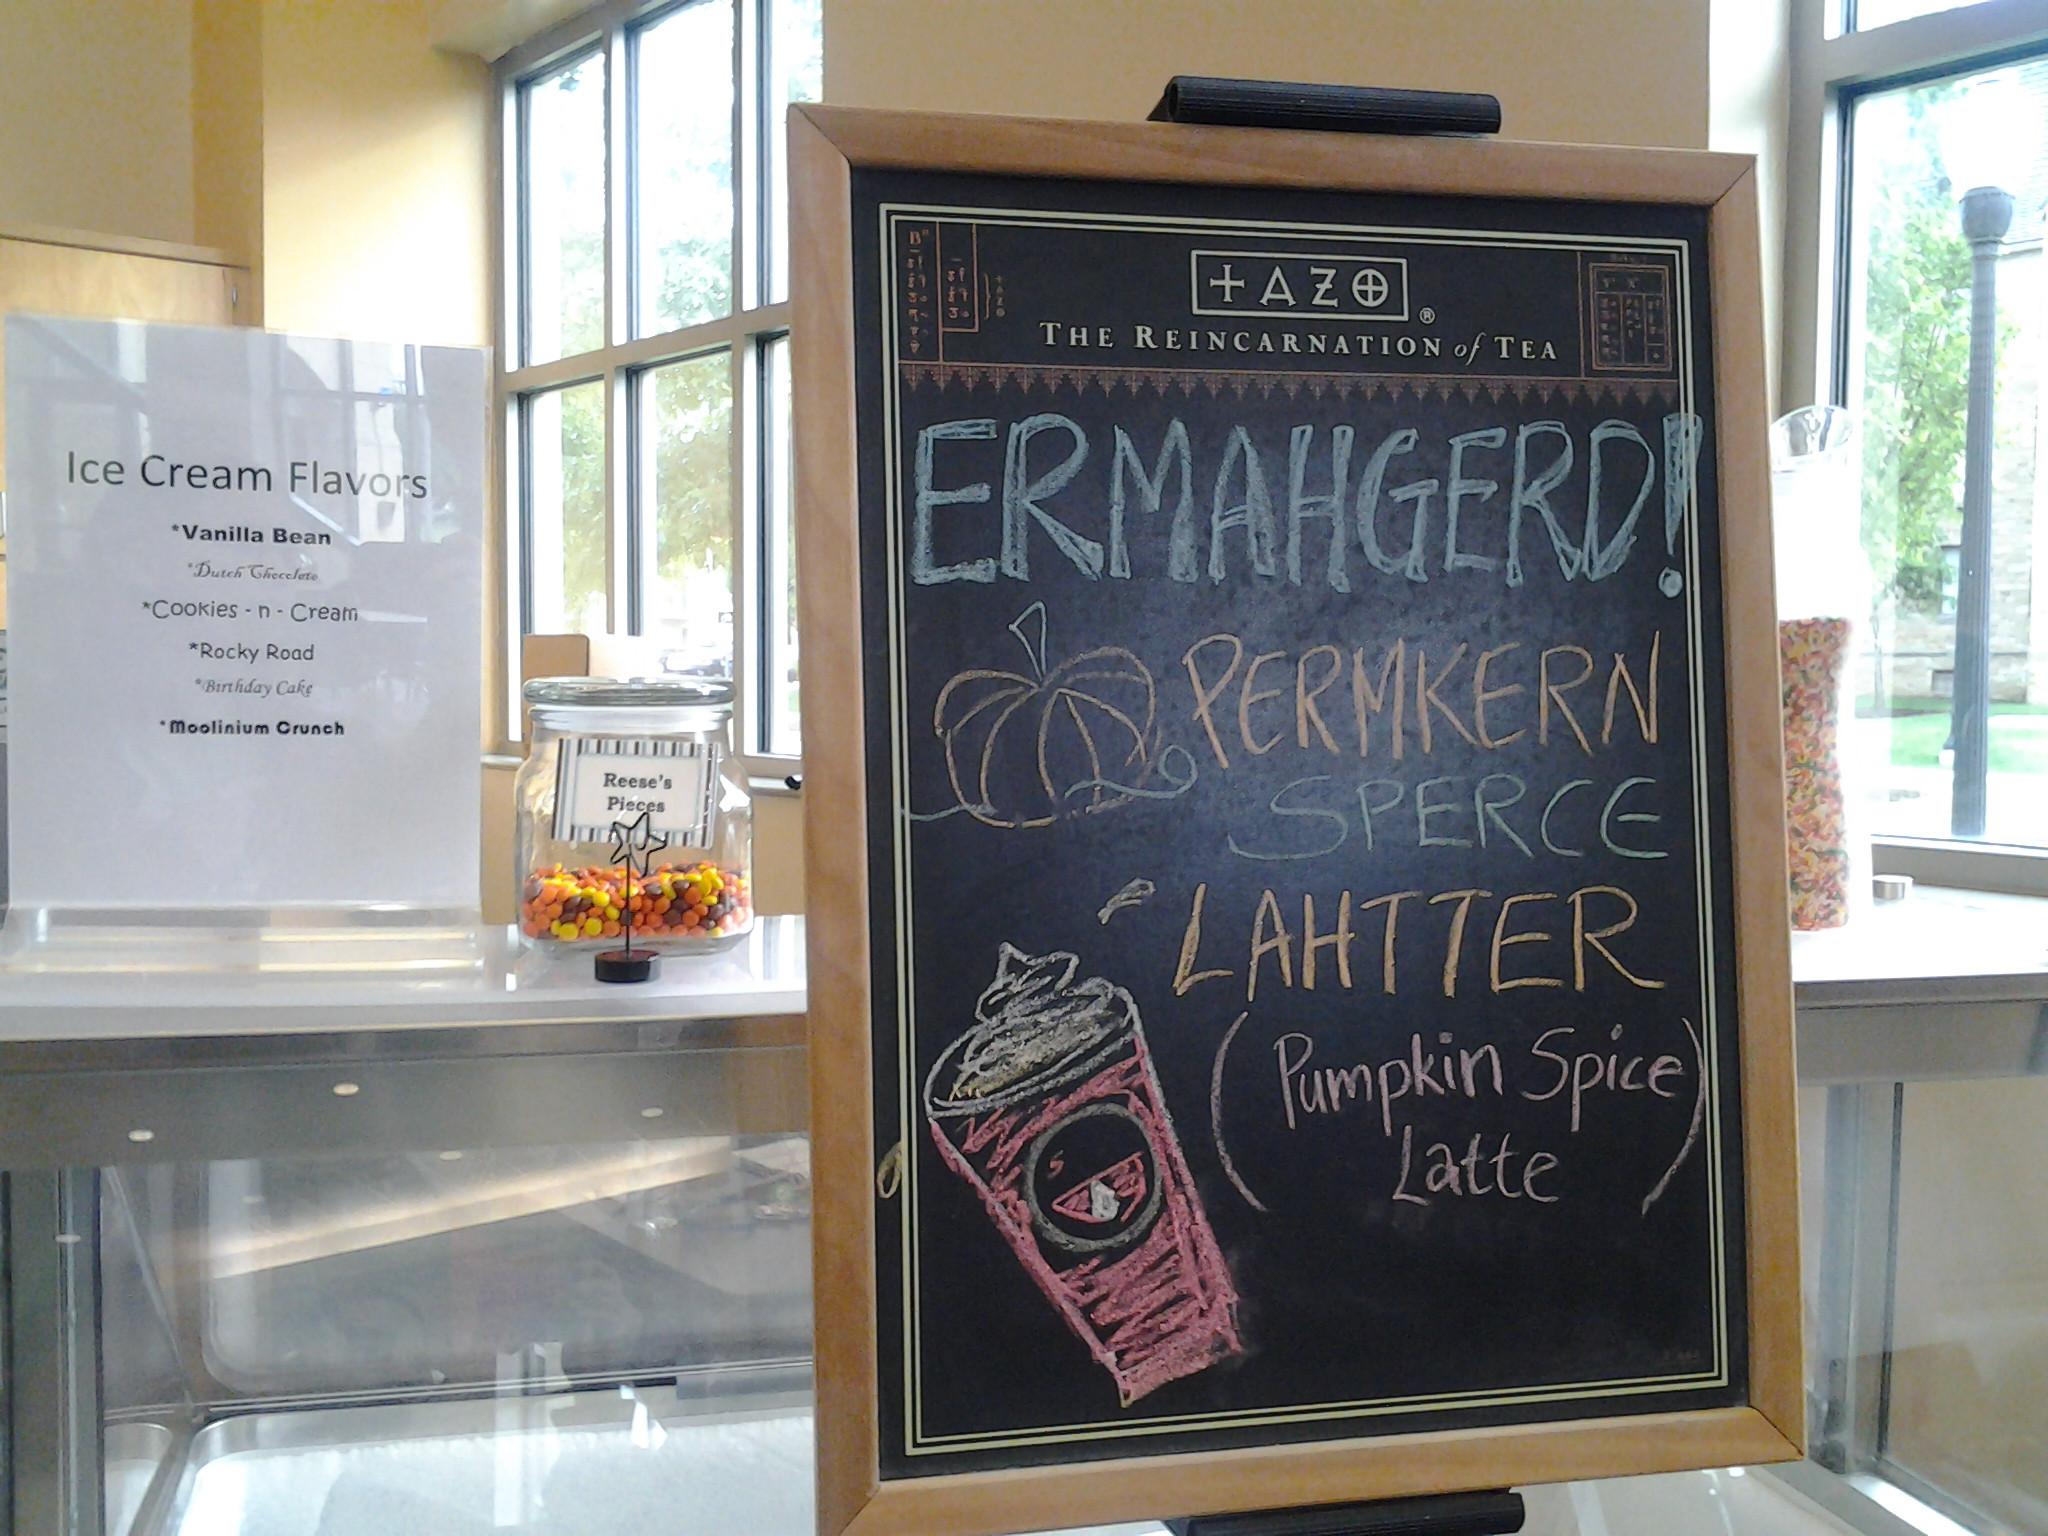 Ice Cream Flavors
*Vanilla Bean
*Dutch Chocolate
*Cookies - n - Cream
*Rocky Road
*Birthday Cake
*Moolinium Crunch
Reese's
Pieces
TAZO®
THE REINCARNATION of TEA
ERMAHGERD!
PERMKERN
SPERCE
LAHTTER
(Pumpkin Spice
Latte)